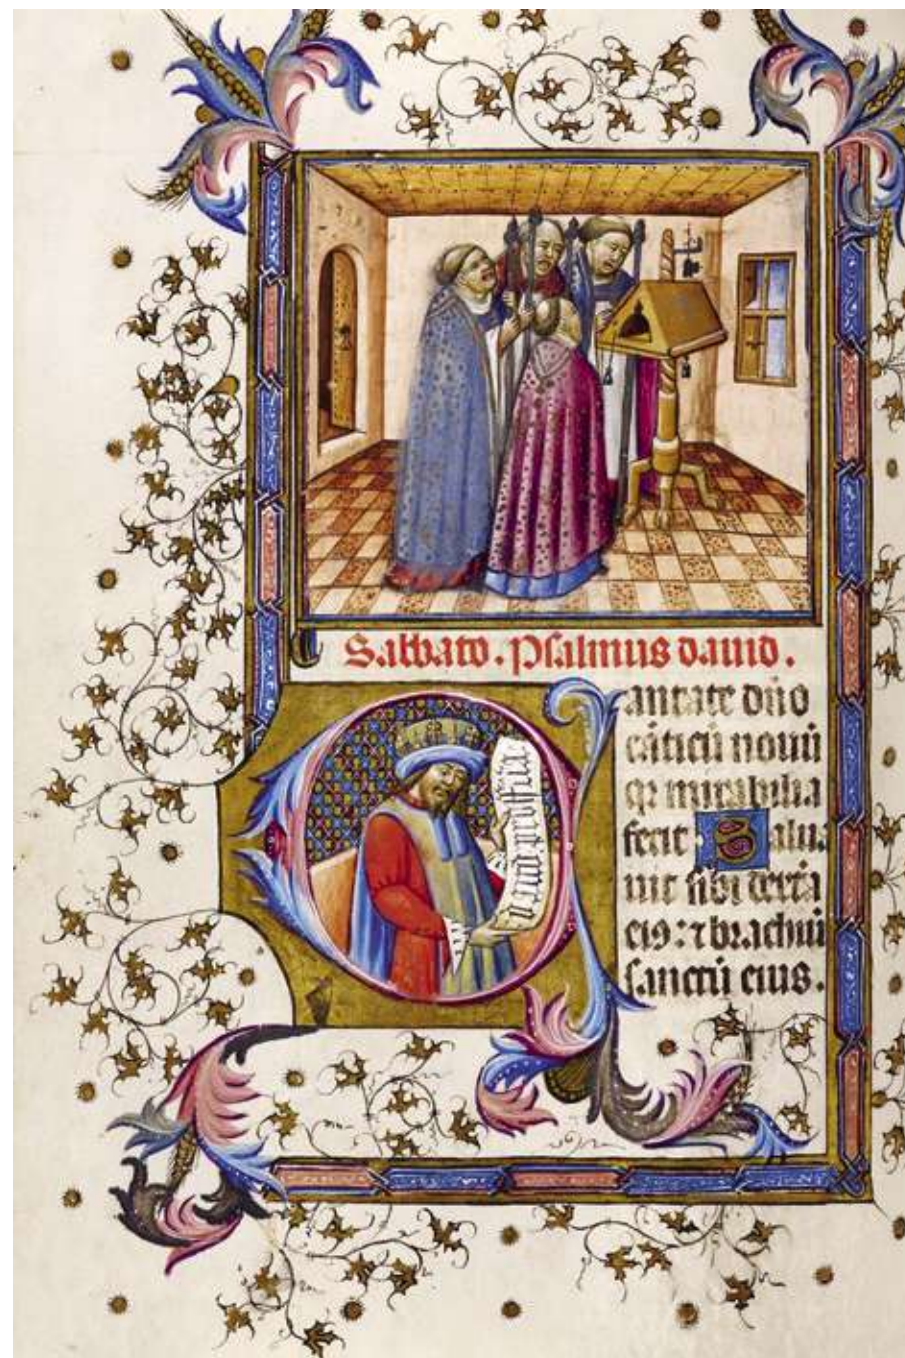 Sabbato. Psalmus dauid.
Cantate dño
cãticũ nouũ
qꝛ mirabilia
fecit Salua
uit sibi dextra
eiꝰ: ⁊ brachiũ
sanctũ eius.